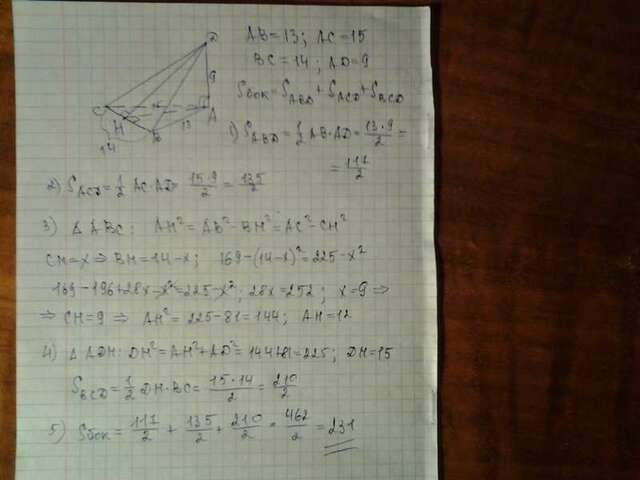 D
9
C
15
A
H
B
13
14
AB=13; AC=15
BC=14; AD=9
Sбок=S_ABD+S_ACD+S_BCD
1) S_ABD=1/2 AB·AD=13·9/2=
=117/2
2) S_ACD=1/2 AC·AD=15·9/2=135/2
3) △ABC: AH²=AB²-BH²=AC²-CH²
CH=x⇒BH=14-x; 169-(14-x)²=225-x²
169-196+28x-x²=225-x²; 28x=252; x=9⇒
⇒CH=9⇒AH²=225-81=144; AH=12
4) △ADH: DH²=AH²+AD²=144+81=225; DH=15
S_BCD=1/2 DH·BC=15·14/2=210/2
5) Sбок=117/2+135/2+210/2=462/2=231